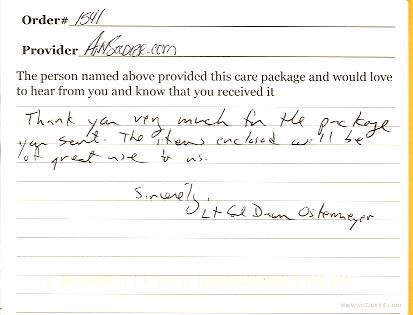 Order# 1541
Provider AnySoldier.com
The person named above provided this care package and would love
to hear from you and know that you received it
Thank you very much for the package
you sent. The items enclosed will be
of great use to us.
Sincerely,
Lt Col Dawn Ostermeyer